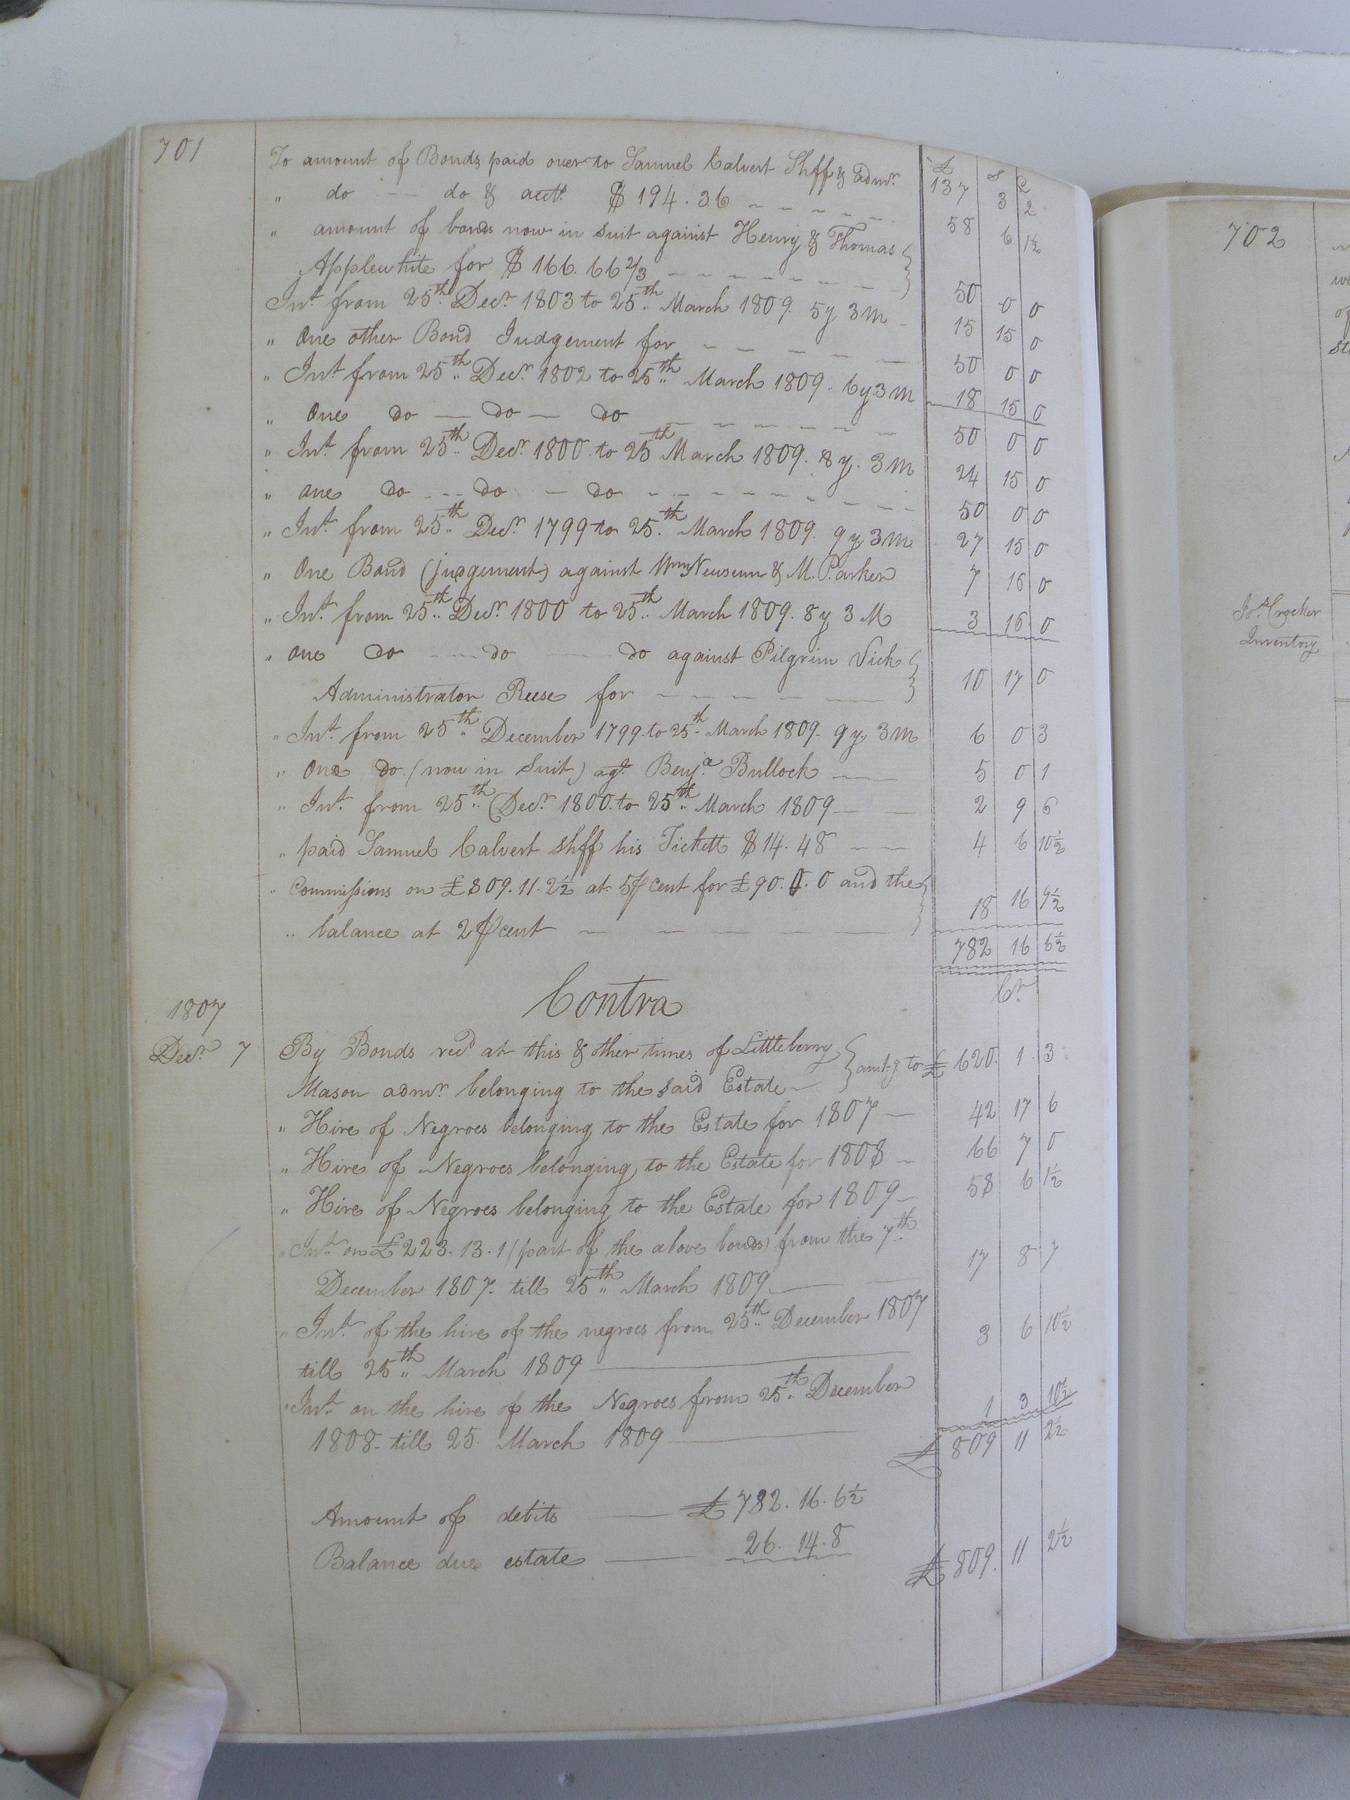 701
£ s d
To amount of Bonds paid over to Samuel Calvert Shff & admr. 137 3 2
" do — do & acct. $194.36 — — — 58 6 1½
" amount of bonds now in suit against Henry & Thomas
Applewhite for $166.66 2/3 — — — 50 0 0
Int. from 25th Decr. 1803 to 25th March 1809. 5y 3m 15 15 0
" One other Bond Judgement for — — — 50 0 0
" Int. from 25th Decr. 1802 to 25th March 1809. 6y 3m 18 15 0
" One do — do — do — — — 50 0 0
" Int. from 25th Decr. 1800 to 25th March 1809. 8y. 3m 24 15 0
" one do — do — do — — — 50 0 0
" Int. from 25th Decr. 1799 to 25th March 1809. 9y 3m 27 15 0
" One Bond (judgement) against Wm Newsum & M. Parker 7 16 0
" Int. from 25th Decr. 1800 to 25th March 1809. 8y 3M 3 16 0
" One do — do do against Pilgrim Vick
Administrator Reese for — — — 10 17 0
" Int. from 25th December 1799 to 25th March 1809. 9y 3m 6 0 3
" One do. (now in Suit) agt. Benja. Bullock — 5 0 1
" Int. from 25th Decr. 1800. to 25th March 1809 — 2 9 6
" paid Samuel Calvert Shff his Tickett $14.48 — — 4 6 10½
" Commissions on £809.11.2½ at 5 ⅌ cent for £90.0.0 and the
" balance at 2 ⅌ cent — — — 18 16 9½
782 16 6½
Contra Cr
1807
Decr. 7 By Bonds recd at this & other times of Littleberry
Mason admr. belonging to the said Estate — amt.g to £620. 1. 3
" Hire of Negroes belonging to the Estate for 1807 — 42 17 6
" Hire of Negroes belonging to the Estate for 1808 — 66 7 0
" Hire of Negroes belonging to the Estate for 1809 — 58 6 1½
" Int. on £223.13.1 (part of the above bonds) from the 7th
December 1807. till 25th March 1809 — 17 8 7
" Int. of the hire of the negroes from 25th December 1807
till 25th March 1809 — 3 6 10½
" Int. on the hire of the Negroes from 25th December
1808. till 25 March 1809 — 1 3 10½
£ 809 11 2½
Amount of debits — £782.16.6½
Balance due estate — 26.14.8 £809. 11 2½
702
Js. Crocker
Inventory